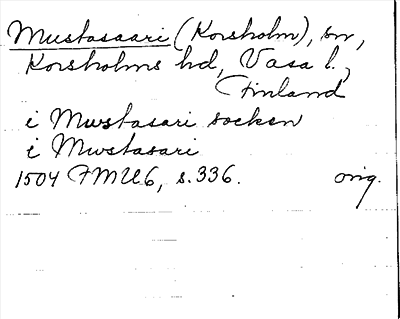 Mustasaari (Korsholm), sn,
Korsholms hd, Vasa l.,
(Finland
i Mustasari socken
i Mustasari
1504 FMU6, s.336. orig.